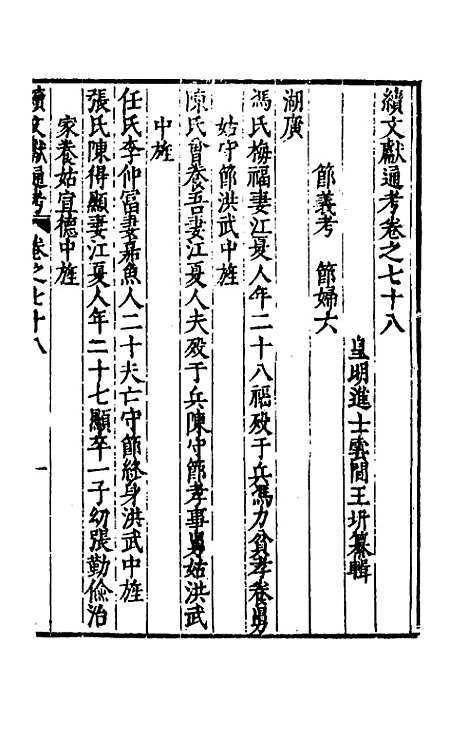 續文獻通考卷之七十八
皇明進士雲間王圻纂輯
節義考 節婦六
湖廣
馮氏梅福妻江夏人年二十八福殁于兵馮力貧孝養舅
姑守節洪武中旌
陳氏曾養吾妻江夏人夫殁于兵陳守節孝事舅姑洪武
中旌
任氏李仲富妻嘉魚人二十夫亡守節終身洪武中旌
張氏陳得顯妻江夏人年二十七顯卒一子幼張勤儉治
家養姑宣德中旌
續文獻通考 卷之七十八 一